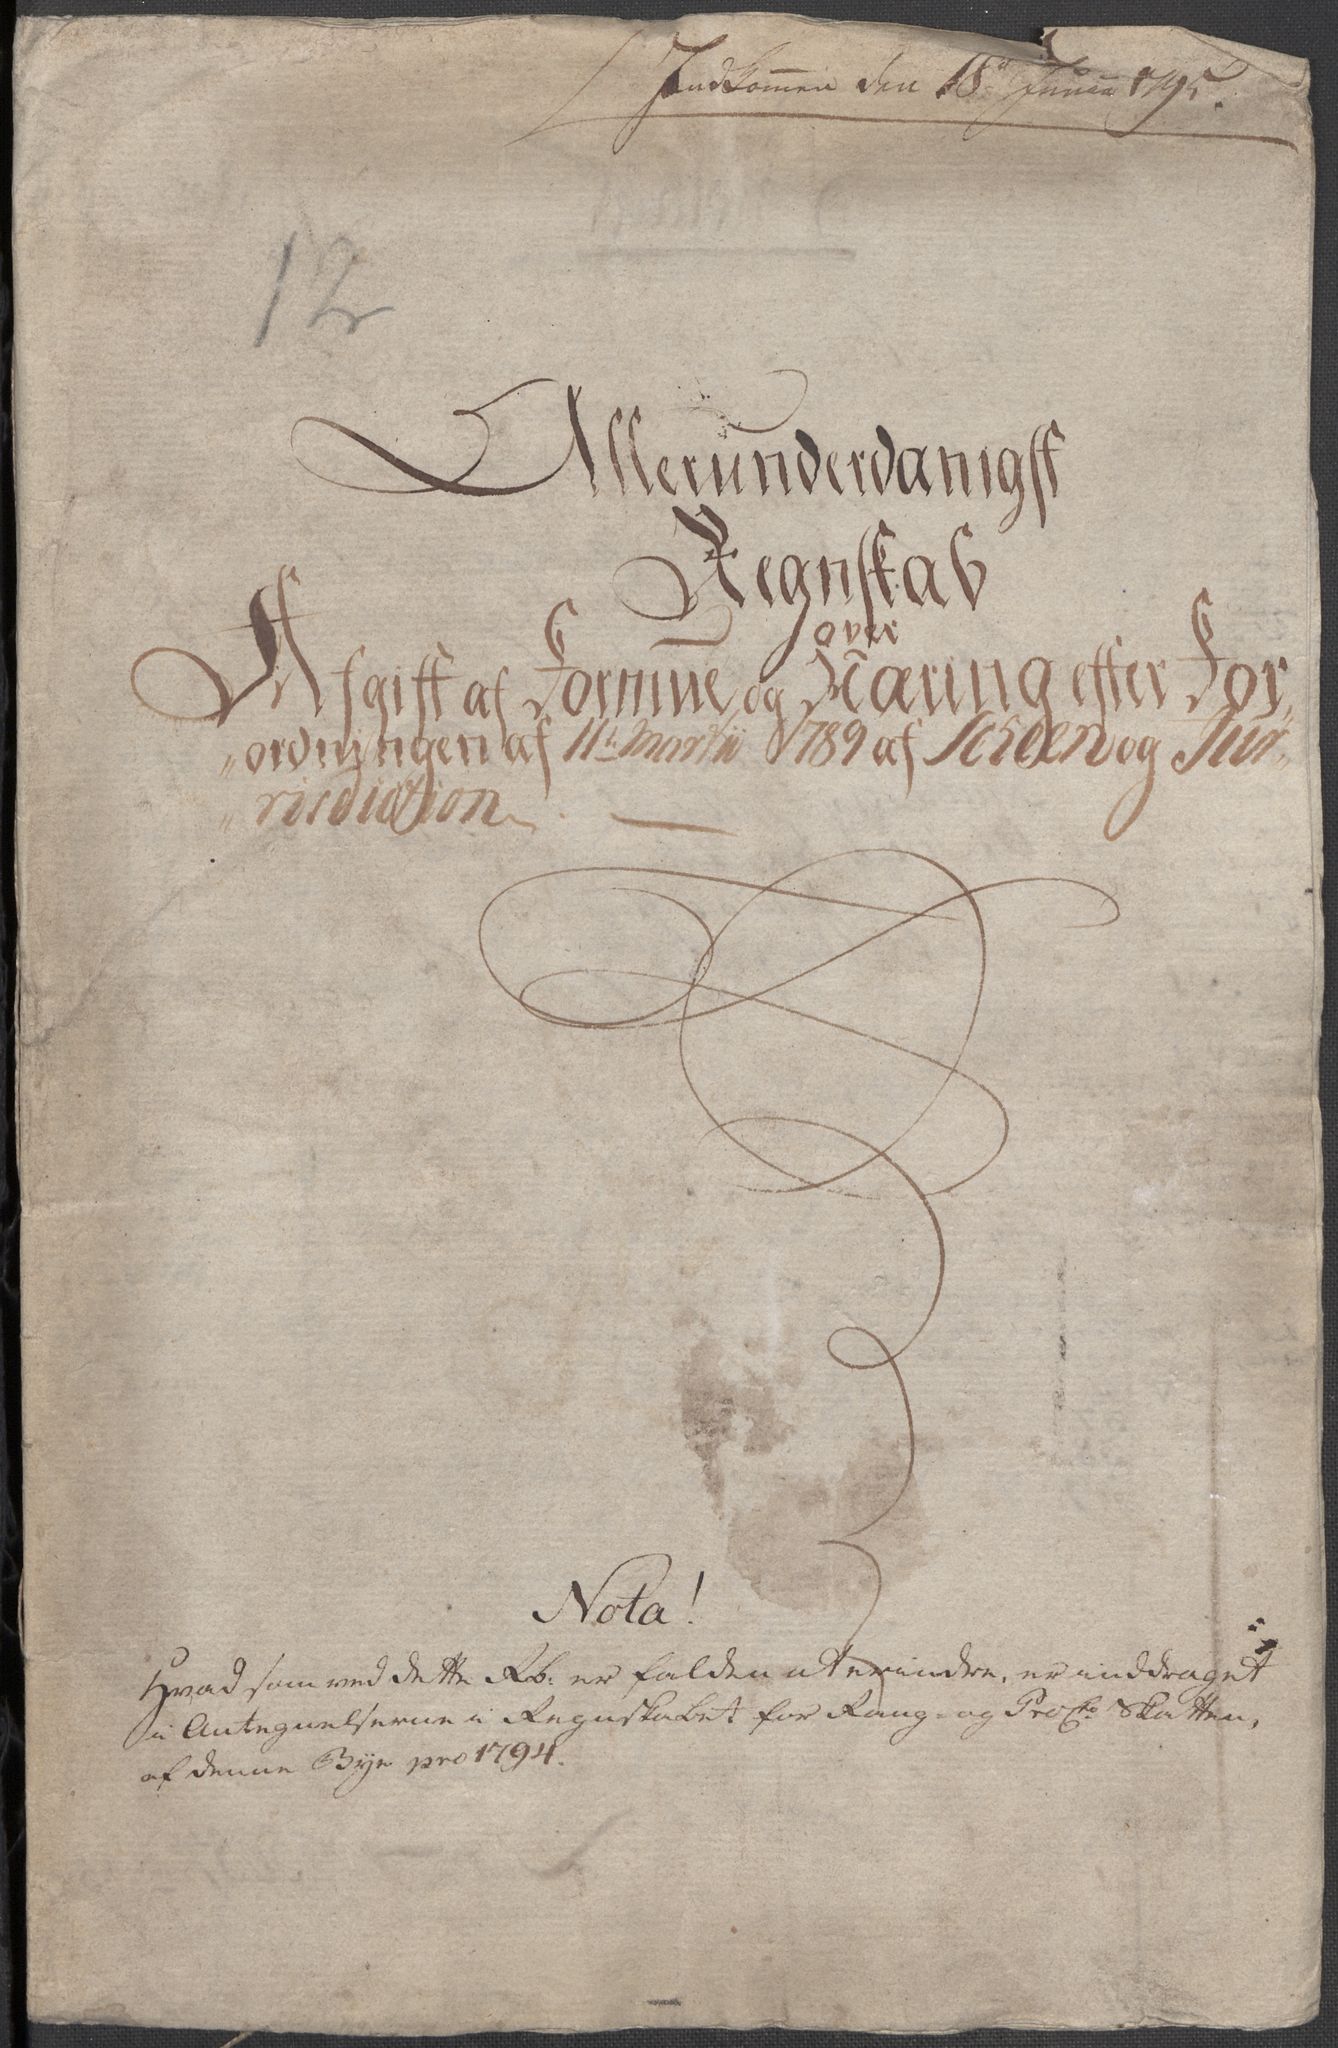 Indkommen den 18de Junii 1795.
12
Allerunderdanigst
Regnskab
over
Afgift af Formue og Næring efter For„
„ordningen af 11te Martii 1789 af Scheen og Jur„
„risdiction
Nota!
Hvad som ved dette Rb: er falden at erindre, er inddraget
i Antegnelserne i Regnskabet for Rang- og Procto Skatten,
af denne Bye pro 1794.